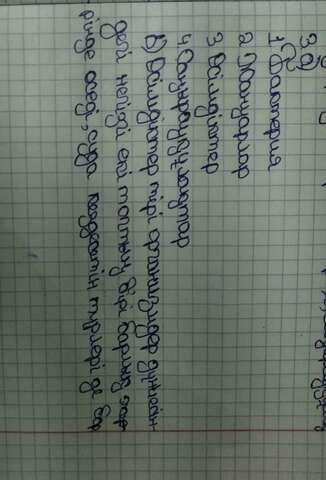 3. а)
1. Бактерия
2. Жануарлар
3. Өсімдіктер
4. Саңырауқұлақтар
б) Өсімдіктер тірі организмдер дүниесін-
дегі негізгі екі топтың бірі барлық жер-
лерінде өседі, суда кездесетін түрлері де бар